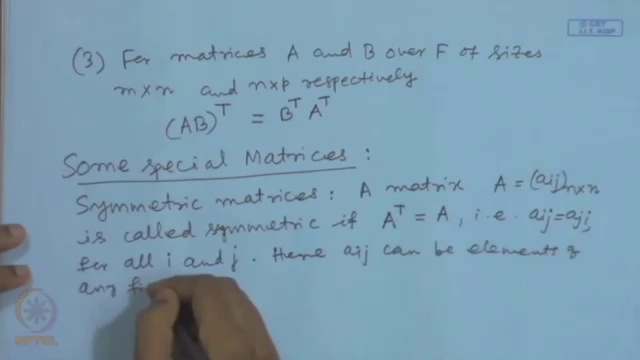 (3) For matrices A and B over F of sizes
m×n and n×p respectively
(AB)^T = B^T A^T
Some special Matrices :
Symmetric matrices : A matrix A = (aij)n×n
is called symmetric if A^T = A, i.e. aij = aji,
for all i and j. Here aij can be elements of
any
© CET
I.I.T. KGP
NPTEL